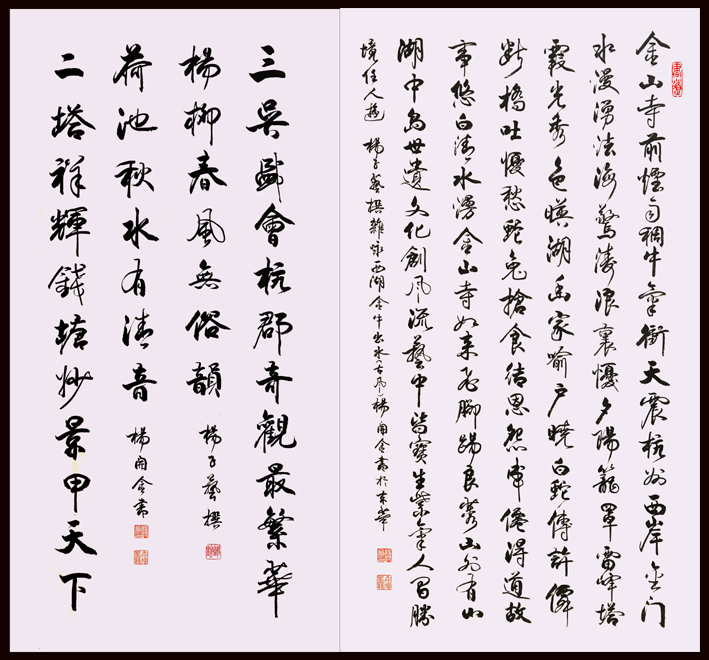 金山寺前煙雨稠牛氣衝天震杭州西岸金门
水漫湧法海驚濤浪裏憂夕陽籠罩雷峰塔
霞光秀色映湖面家喻户曉白蛇傳許僊
断橋吐憂愁蛇兔搶食结恩怨僊得道故
事悠白清水漫金山寺如来飞脚踢良莠山外有山
湖中岛世遺文化創风流藝中皆寶生紫氣人間勝
境任人遊 楊子藝撰雜咏西湖金牛出水(古风)楊開金書於京華
三吳盛會杭郡奇觀最繁華
楊柳春風無俗韻 楊子藝撰
荷池秋水有清音 楊開金書
二塔祥輝錢塘妙景甲天下